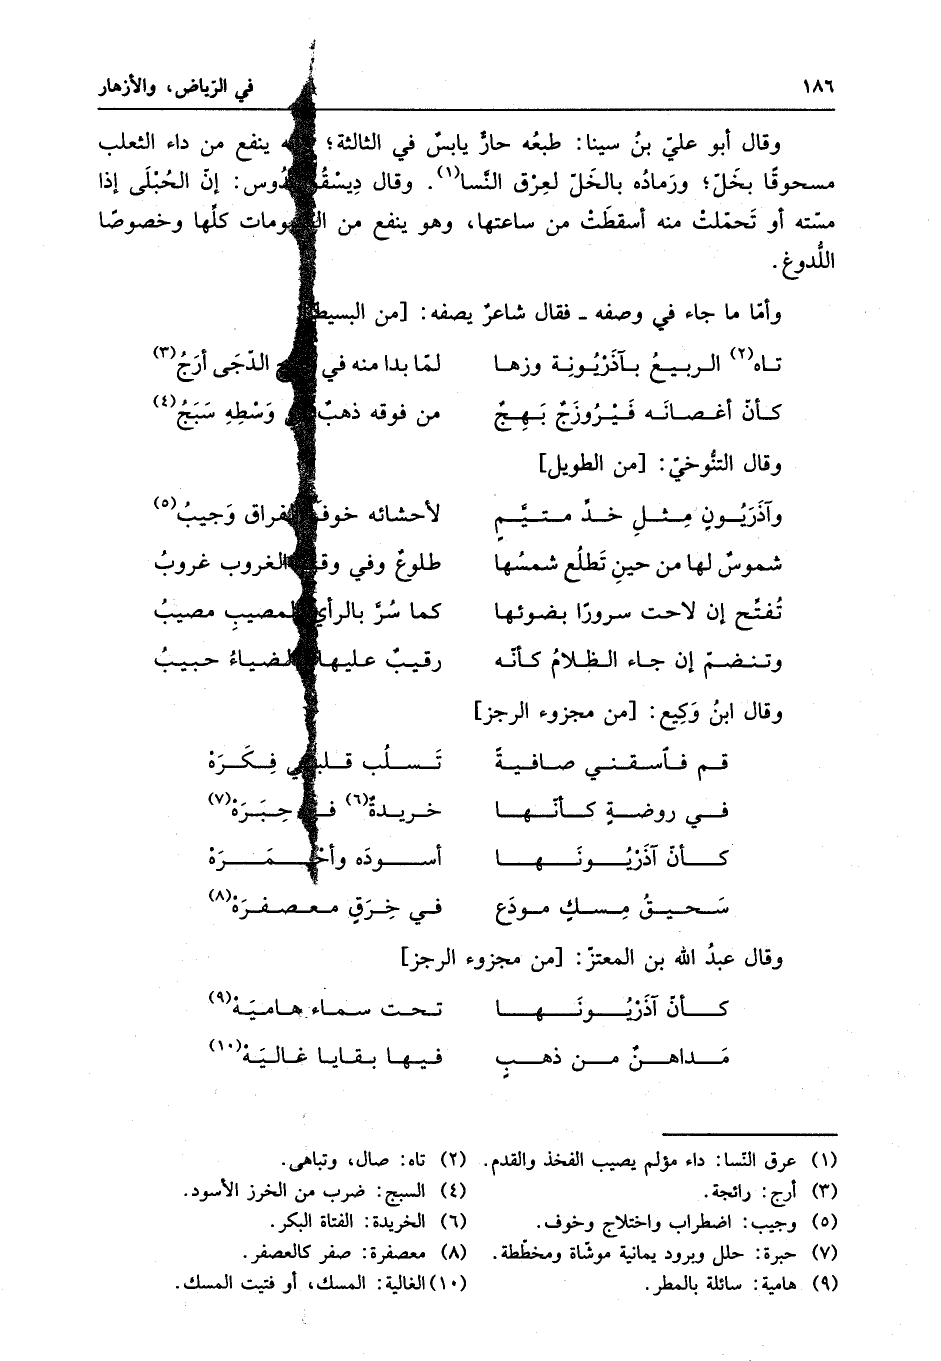 ١٨٦ في الرّياض، والأزهار
وقال أبو عليّ بنُ سينا: طبعُه حارٌّ يابسٌ في الثالثة؛ ينفع من داء الثعلب
مسحوقًا بخَلّ؛ ورَمادُه بالخَلّ لعِرْق النَّسا(١). وقال دِيسْقُ‍ ‍ُدُوس: إنّ الحُبْلَى إذا
مسّته أو تَحمّلتْ منه أسقطَتْ من ساعتها، وهو ينفع من كلِّها وخصوصًا
اللُّدوغ.
وأمّا ما جاء في وصفه ـ فقال شاعرٌ يصفه: [من البسيط
تاه(٢) الربيعُ بآذَرْيُونِة وزها لمّا بدا منه في الدّجَى أرَجُ(٣)
كأنّ أغصانَه فَيْرُوزَجٌ بَهِجٌ من فوقه ذهبٌ وَسْطِهِ سَبَجُ(٤)
وقال التنُّوخيّ: [من الطويل]
وآذَرَيُونٍ مِثلِ خدِّ متيَّمٍ لأحشائه خوفَ الفراق وَجيبُ(٥)
شموسٌ لها من حينِ تَطلُع شمسُها طلوعٌ وفي وقت الغروب غروبُ
تُفتِّح إن لاحت سرورًا بضوئها كما سُرَّ بالرأي المصيبِ مصيبُ
وتنضمّ إن جاء الظلامُ كأنّه رقيبٌ عليها والضياءُ حبيبُ
وقال ابنُ وَكِيع: [من مجزوء الرجز]
قم فأسقني صافيةً تَسلُب قلبي فِكَرَهْ
في روضةٍ كأنّها خريدةٌ(٦) في حِبَرَهْ(٧)
كأنّ آذَرْيُونَها أسودَه وأحْمَرَهْ
سَحيقُ مِسكٍ مودَع في خِرَقٍ معصفرَهْ(٨)
وقال عبدُ الله بن المعتزّ: [من مجزوء الرجز]
كأنّ آذَرْيُونَها تحت سماء هاميَهْ(٩)
مَداهنٌ من ذهبٍ فيها بقايا غاليَهْ(١٠)
(١) عرق النّسا: داء مؤلم يصيب الفخذ والقدم. (٢) تاه: صال، وتباهى.
(٣) أرج: رائجة. (٤) السبج: ضرب من الخرز الأسود.
(٥) وجيب: اضطراب واختلاج وخوف. (٦) الخريدة: الفتاة البكر.
(٧) حبرة: حلل وبرود يمانية موشّاة ومخطّطة. (٨) معصفرة: صفر كالعصفر.
(٩) هامية: سائلة بالمطر. (١٠) الغالية: المسك، أو فتيت المسك.